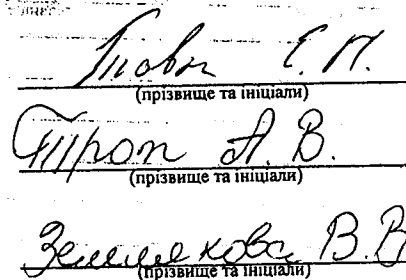 Е. П.
(прізвище та ініціали)
Троп А. В.
(прізвище та ініціали)
Землякова В. В
(прізвище та ініціали)